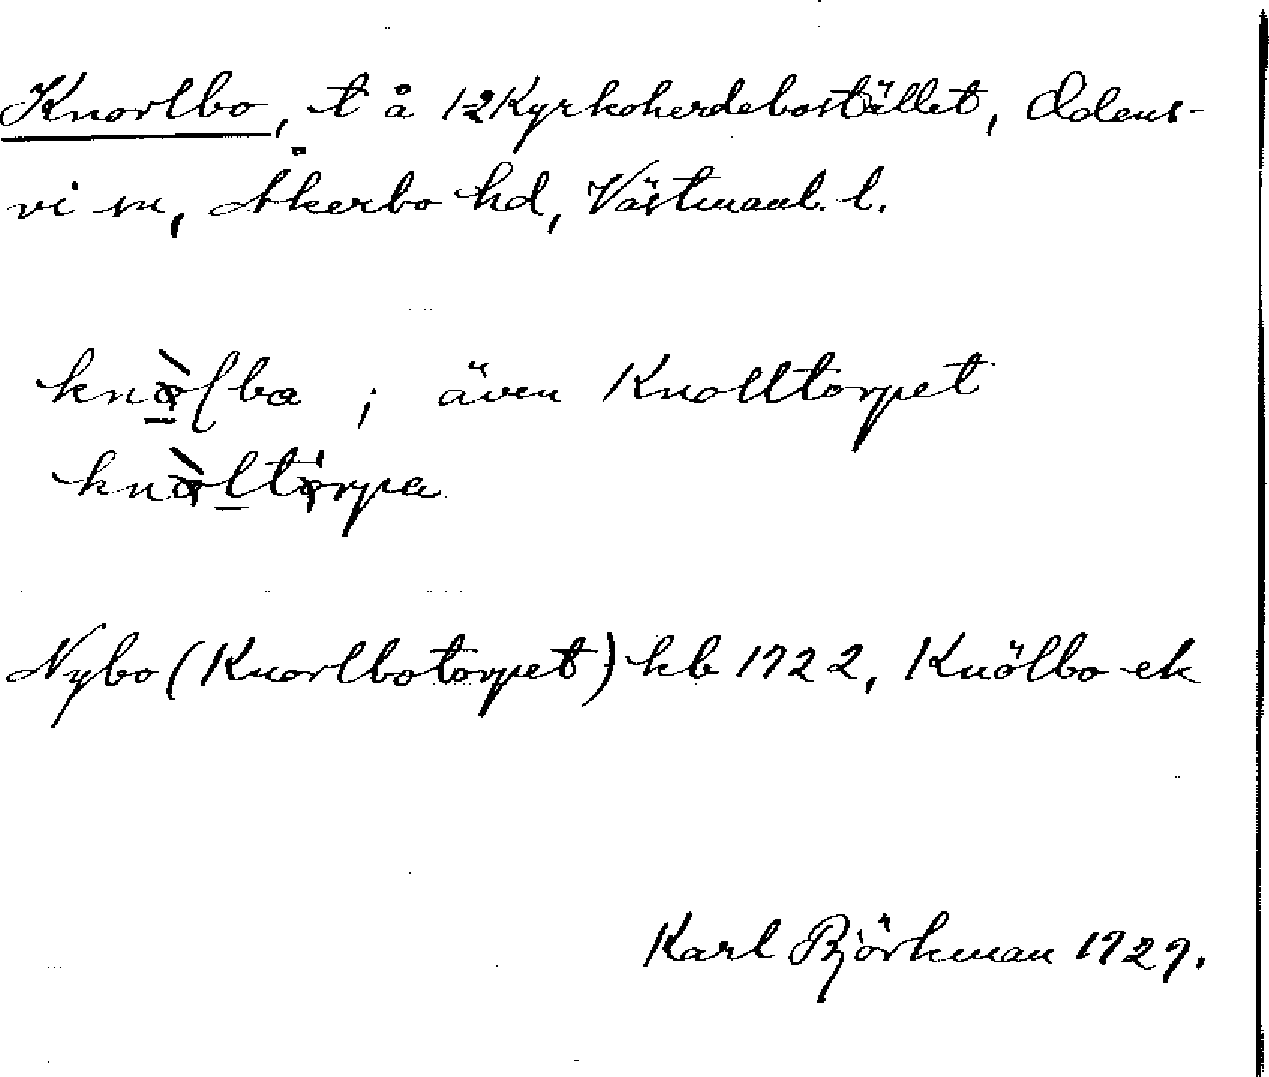 Knorlbo, t å 12 Kyrkoherdebostället, Odens-
vi sn, Åkerbo hd, Västmanl. l.
knòlba ; även Knolltorpet
knòltórpa
Nybo (Knorlbotorpet) kb 1722, Knölbo ek
Karl Björkman 1929.